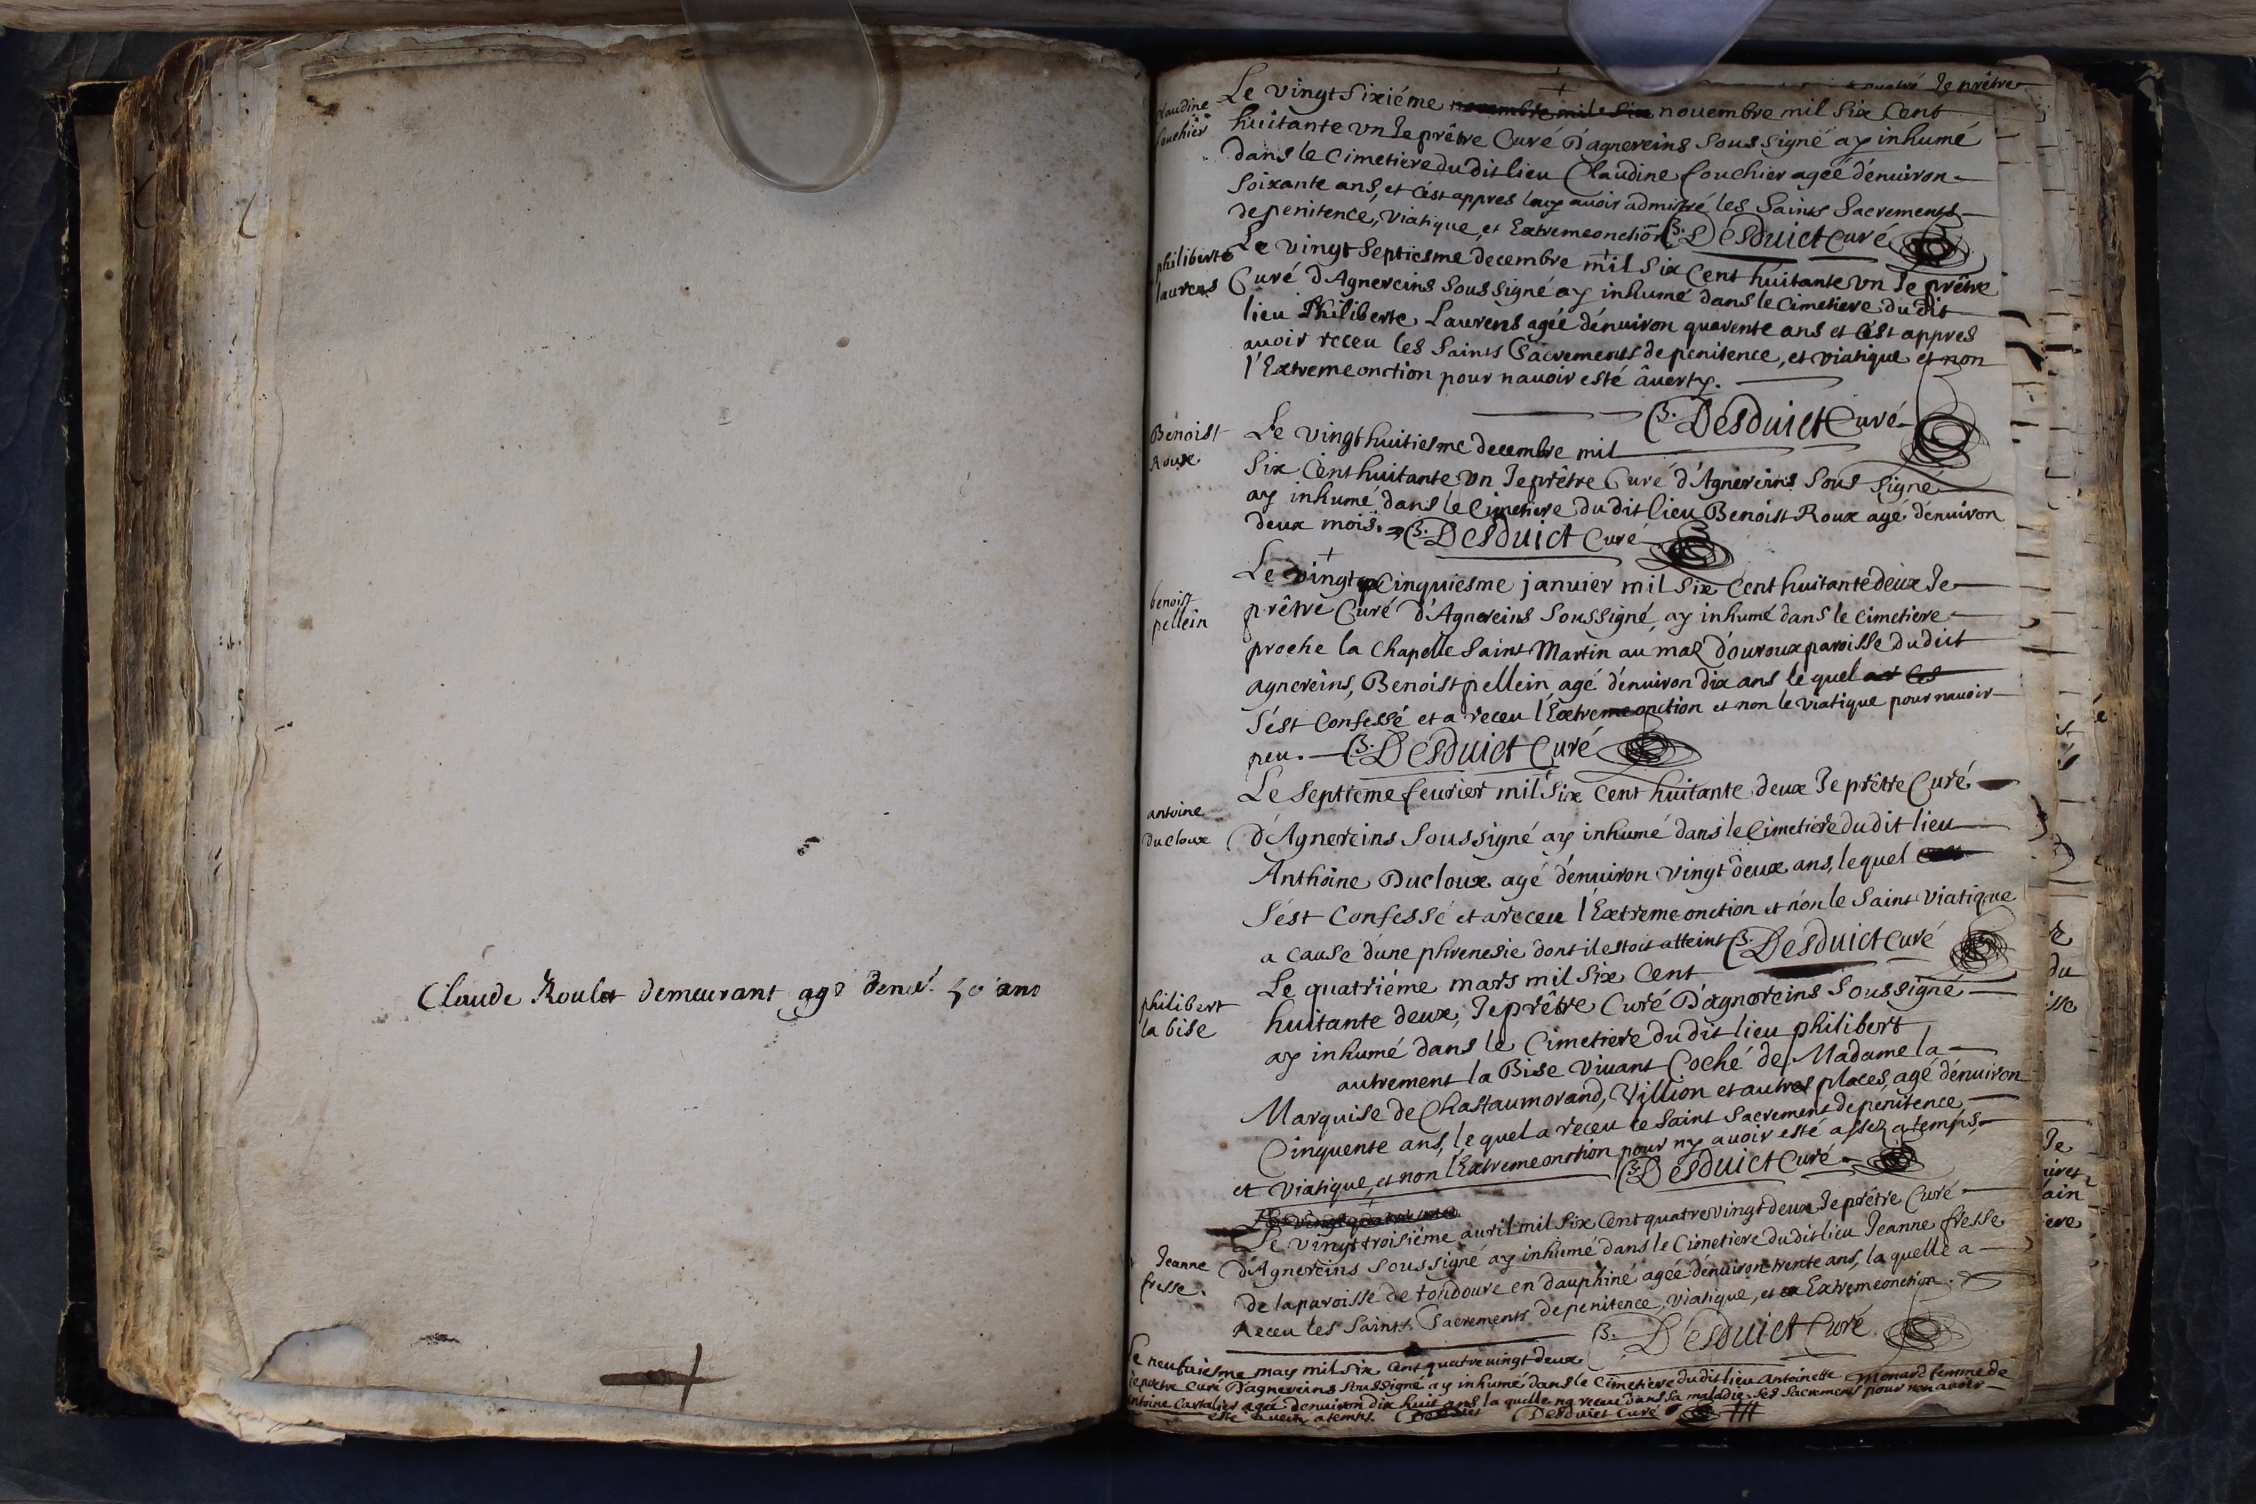 Claude Roulet demeurant agé 50 ans
Je prêtre
Claudine
fouchier
Le vingt sixiéme novembre mil six novembre mil six cent
huitante un Je prêtre Curé D'agnereins soussigné ay inhumé
dans le Cimetiere du dit lieu Claudine fouchier ageé d'enuiron
soixante ans, et c'est appres luy auoir admistré les saints sacrements
de penitence, viatique, et Extremeonction B. Desduict Curé
philiberte
laurens
Le vingt septiesme decembre mil six cent huitante un Je prêtre
Curé d'Agnereins soussigné ay inhumé dans le cimetiere du dit
lieu Philiberte Laurens agée d'enuiron quarente ans et c'est appres
auoir receu les saints sacrements de penitence, et viatique et non
l'Extremeonction pour nauoir esté âuerty.
B. Desduict Curé
Benoist
Roux
Le vingt huitiesme decembre mil
six cent huitante un Je prêtre Curé d'Agnereins sous signé
ay inhumé dans le Cimetiere du dit lieu Benoist Roux agé d'enuiron
deux mois. B. Desduict Curé
benoist
pellein
Le vingt cinquiesme januier mil six cent huitante deux Je
prêtre Curé d'Agnereins soussigné, ay inhumé dans le cimetiere
proche la chapelle saint Martin au maz d'ouroux paroisse du dict
agnereins, Benoist pellein agé d'enuiron dix ans le quel
s'est confessé et a receu l'Extremeonction et non le viatique pour nauoir
peu. B. Desduict Curé
antoine
Ducloux
Le septieme feurier mil six cent huitante deux Je prêtre Curé
d'Agnereins soussigné ay inhumé dans le Cimetiere du dit lieu
Anthoine Ducloux agé d'enuiron vingt deux ans, lequel
s'est confessé et a receu l'Extremeonction et non le saint viatique
a cause d'une phrenesie dont il estoit atteint B. Desduict Curé
philibert
la bise
Le quatriéme mars mil six cent
huitante deux, Je prêtre Curé D'agnereins soussigné
ay inhumé dans le Cimetiere du dit lieu philibert
autrement la Bise viuant Coché de Madame la
Marquise de Chastaumorand, Villion et autres places, agé d'enuiron
Cinquente ans, le quel a receu le saint sacrement de penitence
et viatique, et non l'Extremeonction pour ny auoir esté assez a temps
B. Desduict Curé
Le vingt quatre
Jeanne
fresse.
Le vingt troisiéme auril mil six cent quatre vingt deux Je prêtre Curé
d'Agnereins soussigné ay inhumé dans le Cimetiere du dit lieu Jeanne fresse
de la paroisse de toudoure en dauphiné agée d'enuiron trente ans, la quelle a
Receu les saints sacrements de penitence, viatique, et Extremeonction.
B. Desduict Curé
Le neufuiesme may mil six cent quatre vingt deux
Je prêtre Curé D'agnereins soussigné ay inhumé dans le Cimetiere du dit lieu Antoinette Monard femme de
antoine Cartalier agée d'enuiron dix huit ans la quelle na receu dans sa maladie les sacrements pour non auoir
esté auerty a temps. Desduict Curé